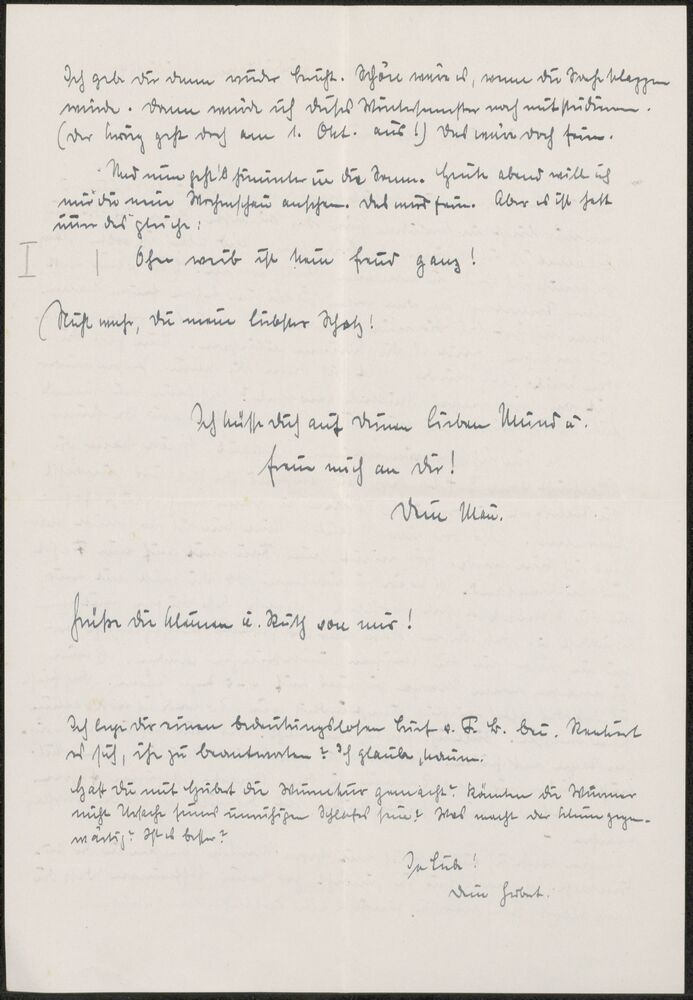 Ich geb dir dann wieder Bericht. Schön wäre es, wenn die Sache klappen
würde. Dann würde ich dieses Wintersemester noch mitstudieren.
(der Krieg geht doch am 1. Okt. aus!) Das wäre doch fein.
Und nun geht's hinunter in die Sonne. Heute abend will ich
mir die neue Wochenschau ansehen. Das wird fein. Aber es ist halt
immer das gleiche:
Ohne Weib ist kein Freud ganz!
(Nicht wahr, du mein liebster Schatz!
Ich küsse dich auf deinen lieben Mund u.
freue mich an dir!
Dein Man.
Grüße die Kleinen u. Ruth von mir!
Ich lege dir einen bedeutungslosen Brief v. F. B. bei. Rentiert
es sich, ihn zu beantworten? Ich glaube, kaum.
Hast du mit Hubert die Wurmkur gemacht? Könnten die Würmer
nicht Ursache seines unruhigen Schlafes sein? Was macht der Kleine gegen-
wärtig? Ist es besser?
In Liebe!
Dein Herbert.